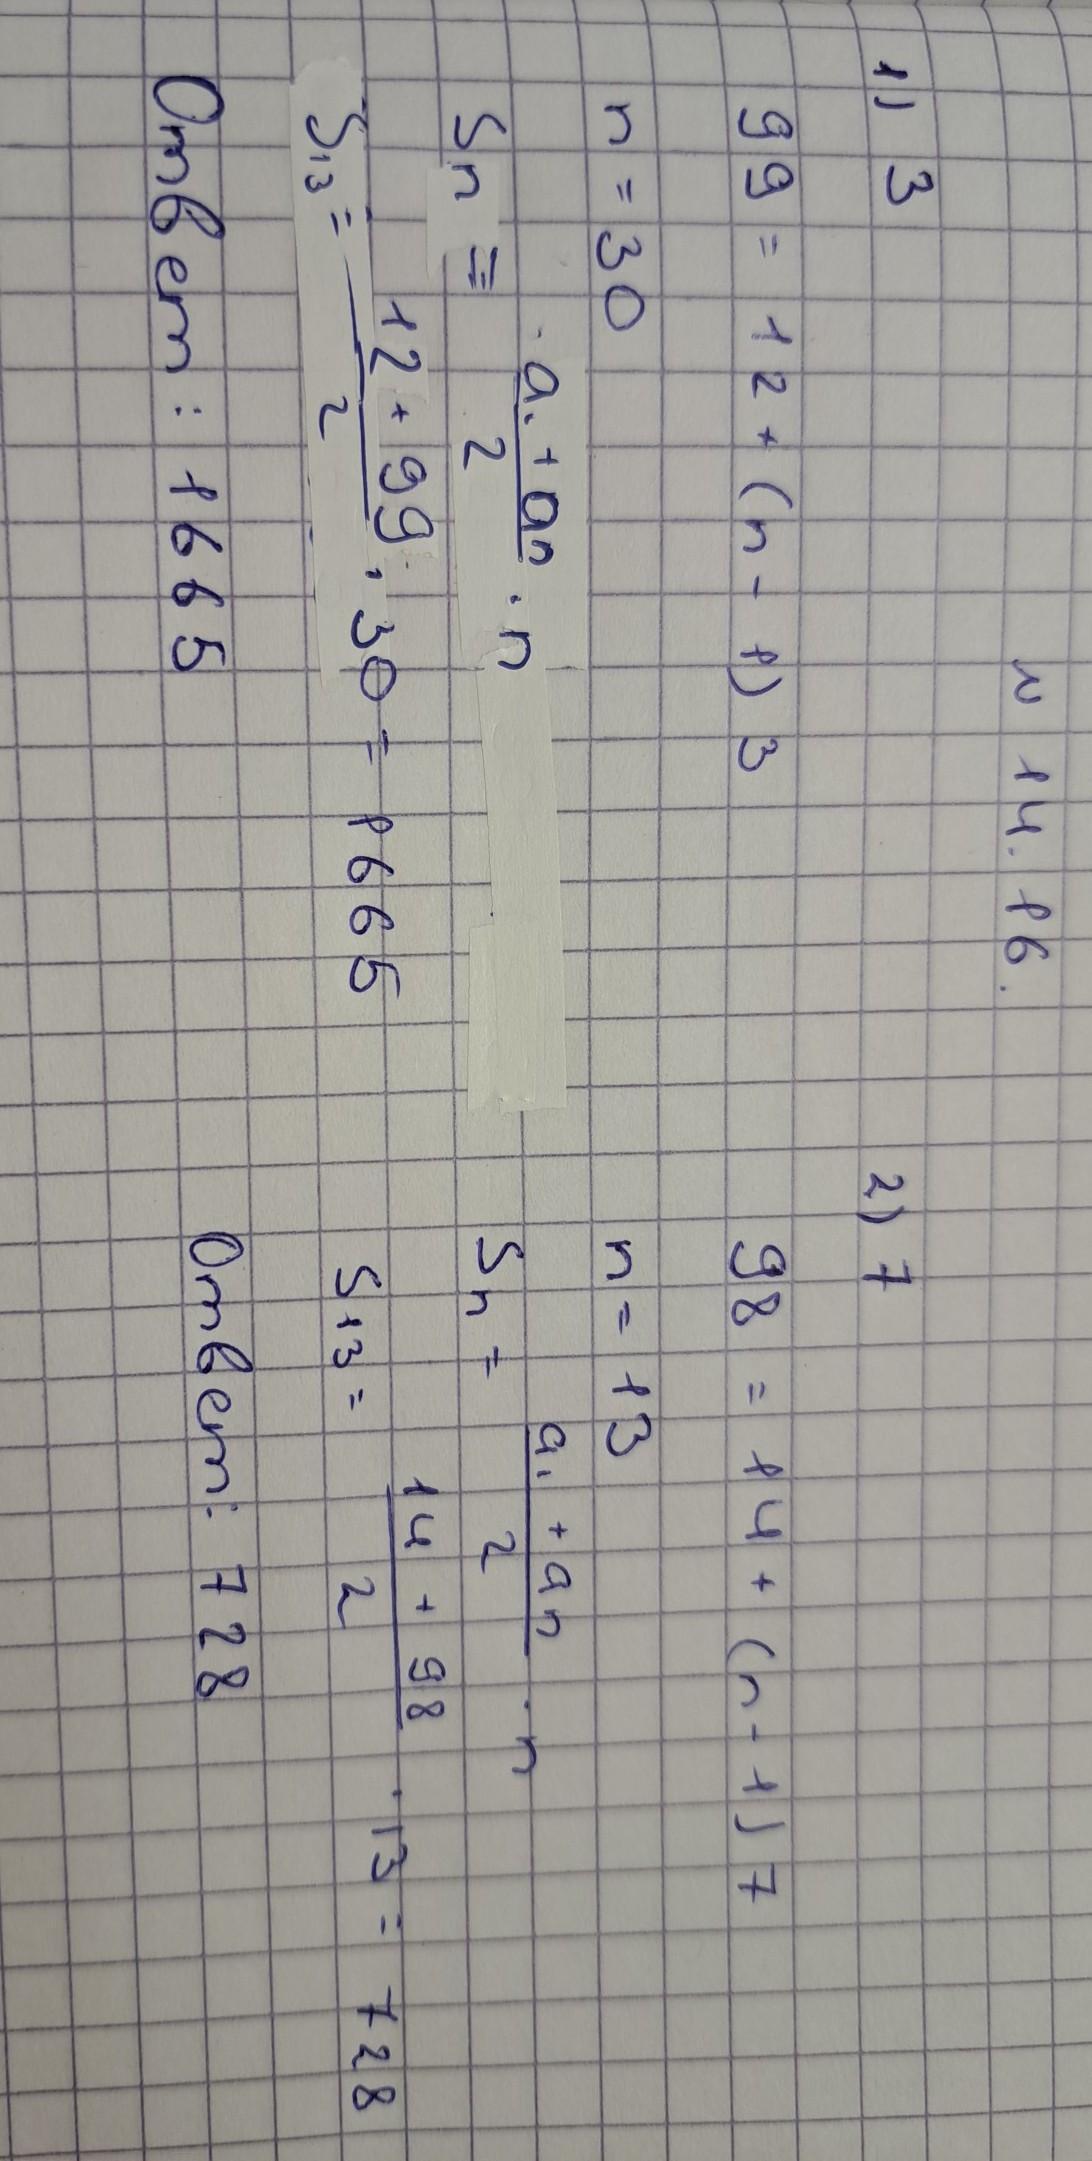 № 14.16.
1) 3
99 = 12 + (n - 1) 3
n = 30
Sn = a1 + an / 2 · n
S13 = 12 + 99 / 2 · 30 = 1665
Ответ: 1665
2) 7
98 = 14 + (n - 1) 7
n = 13
Sn = a1 + an / 2 · n
S13 = 14 + 98 / 2 · 13 = 728
Ответ: 728